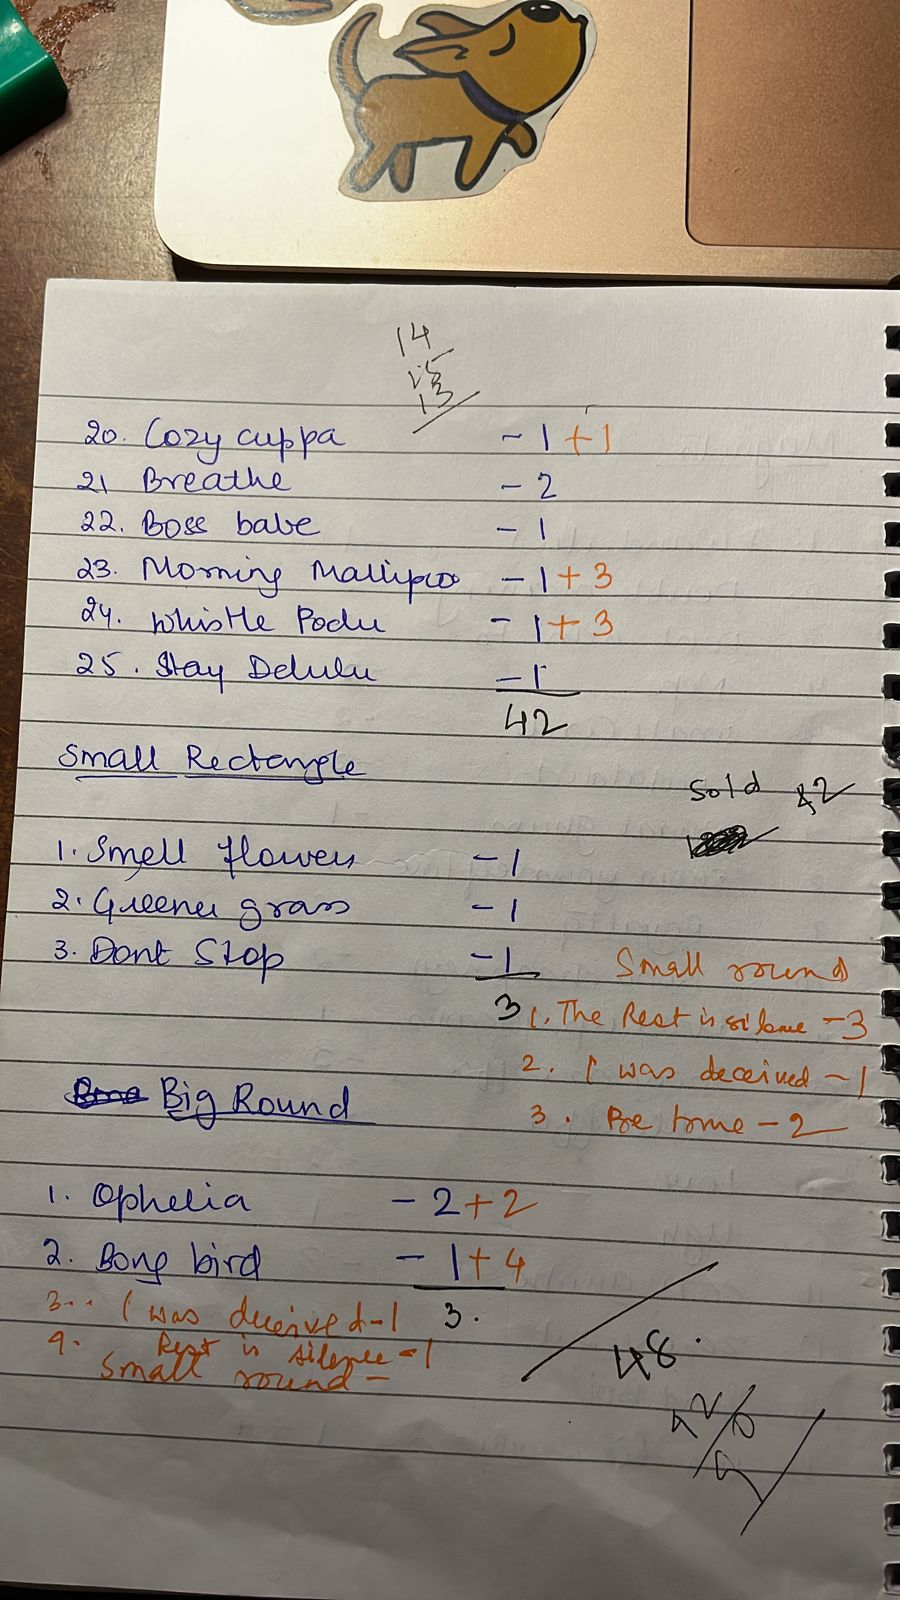 14
15
13
20. Cozy cuppa - 1 + 1
21 Breathe - 2
22. Boss babe - 1
23. Morning Mallipoo - 1 + 3
24. Whistle Podu - 1 + 3
25. Stay Delulu - 1
42
Small Rectangle
Sold 42
1. Smell flowers - 1
2. Greener grass - 1
3. Dont Stop - 1
3
Small round
1. The Rest is silence - 3
2. I was deceived - 1
3. Be - 2
Big Round
1. Ophelia - 2 + 2
2. Bong bird - 1 + 4
3.
3.. I was deceived - 1
4. Rest is silence - 1
Small round -
48.
42